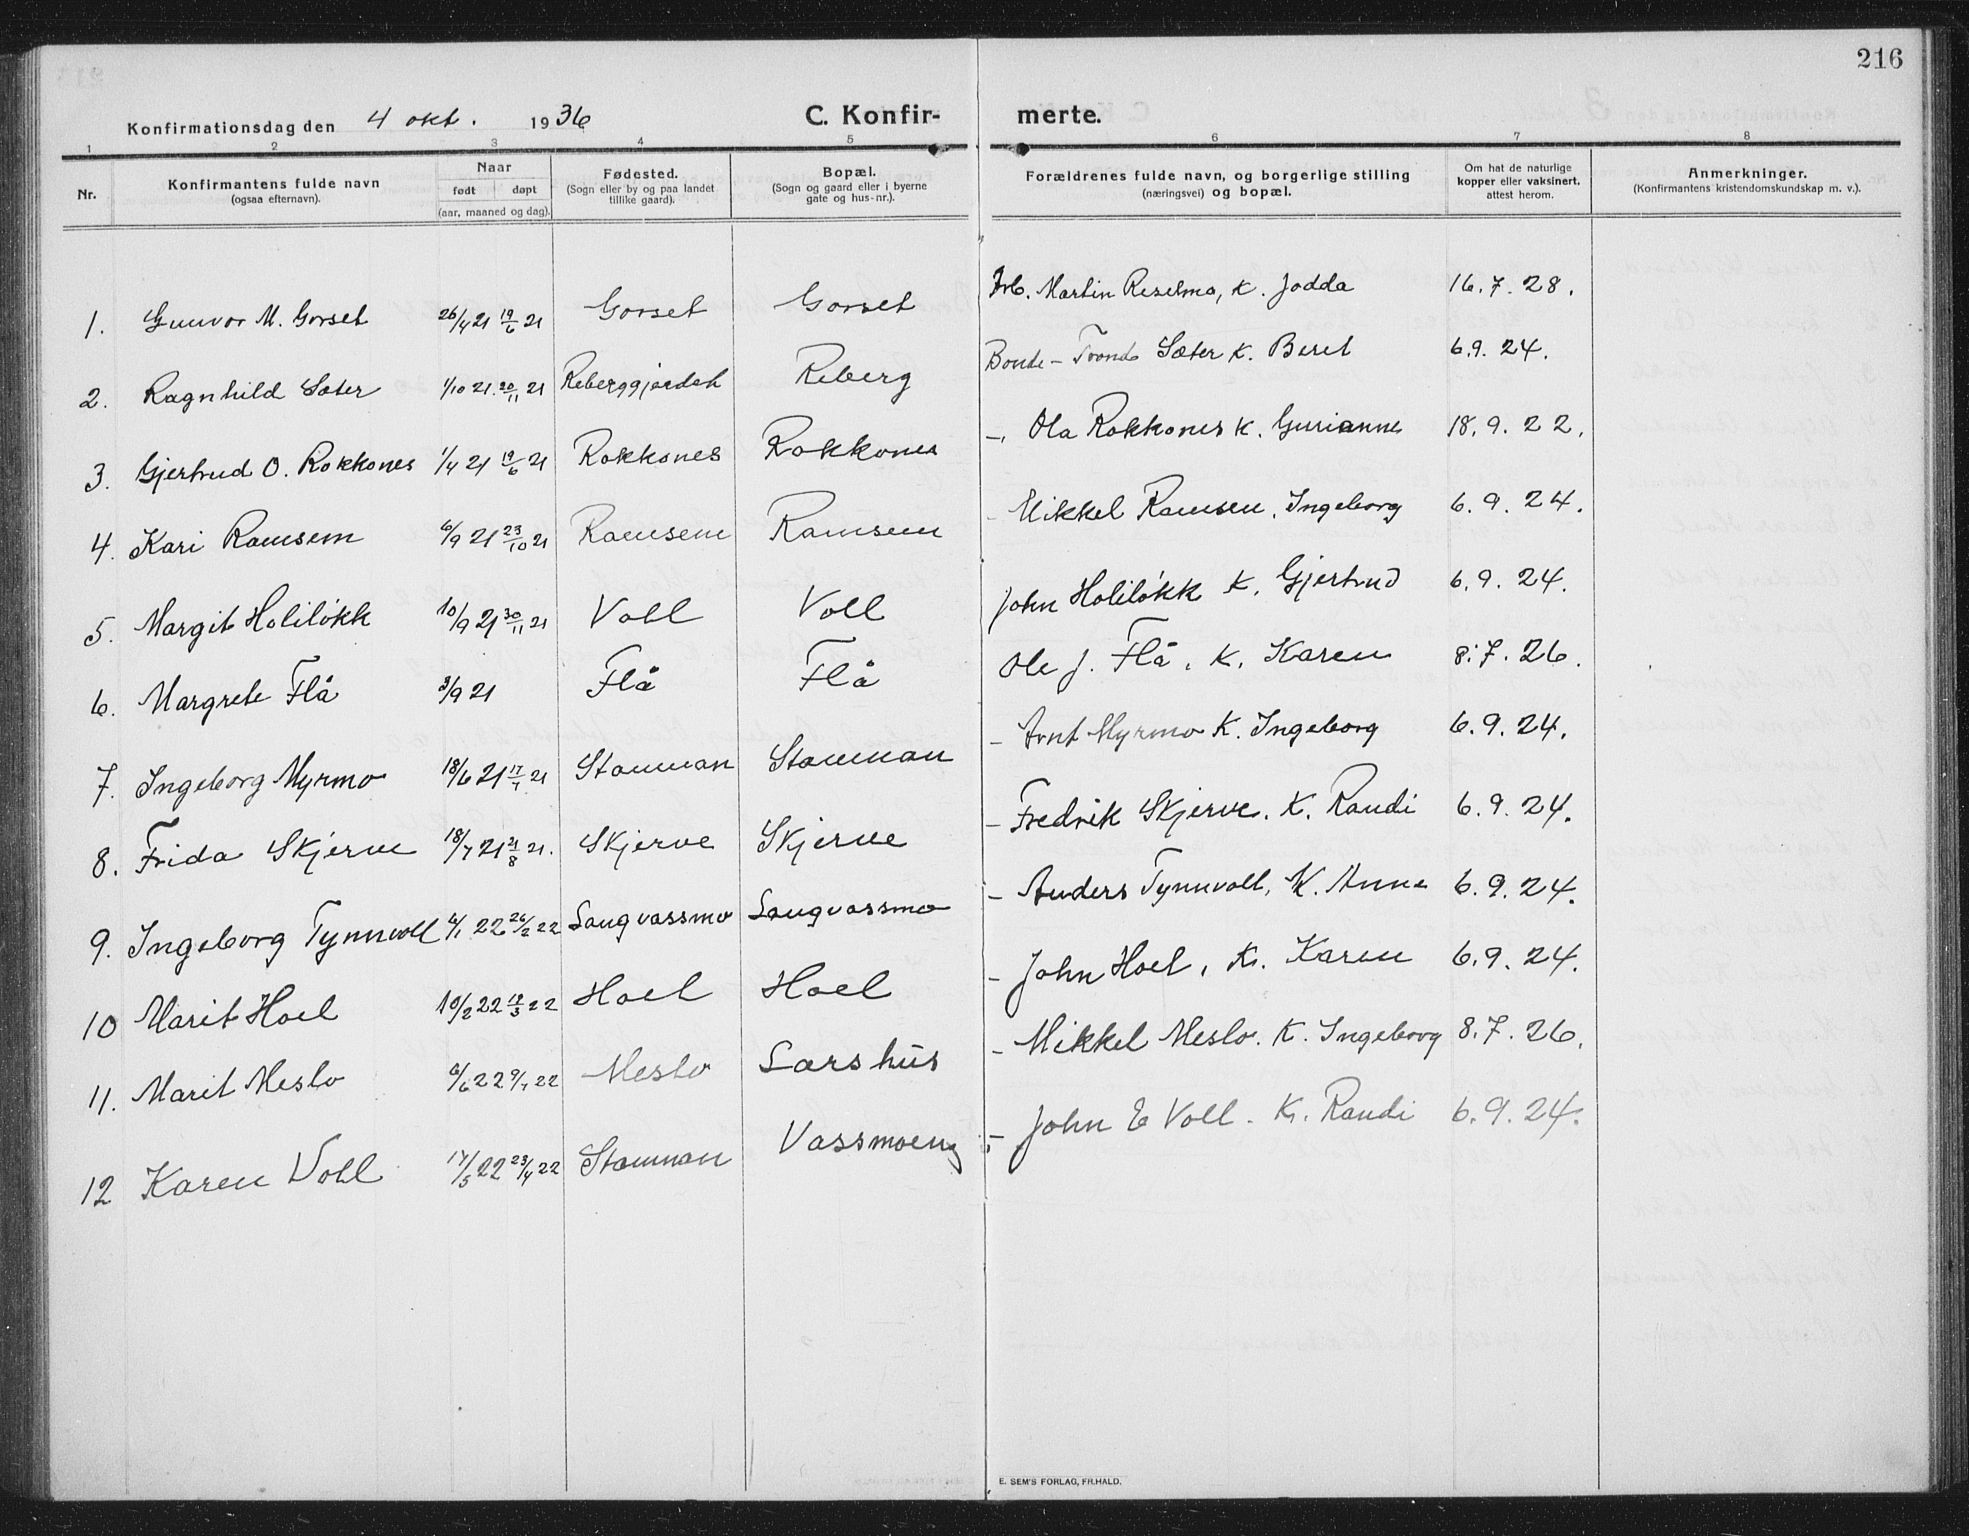 216
Konfirmationsdag den 4 okt. 1936 C. Konfir- merte.
1 2 3 4 5 6 7 8
Nr. Konfirmantens fulde navn (ogsaa efternavn). Naar født døpt (aar, maaned og dag). Fødested. (Sogn eller by og paa landet tillike gaard). Bopæl. (Sogn og gaard eller i byerne gate og hus-nr.). Forældrenes fulde navn, og borgerlige stilling (næringsvei) og bopæl. Om hat de naturlige kopper eller vaksinert, attest herom. Anmerkninger. (Konfirmantens kristendomskundskap m. v.).
1. Gunvor M. Gorset 26/4 21 19/6 21 Gorset Gorset Arb. Martin Reselmo, K. Jodda 16.7.28.
2. Ragnhild Sæter 1/10 21. 20/11 21 Reberggjerdet Reberg Bonde – Trond Sæter K. Beret 6.9.24.
3. Gjertrud O. Rokkones 1/4 21 19/6 21 Rokkones Rokkones –, Ola Rokkones K. Gurianne 18.9.22.
4. Kari Ramsem 6/9 21 23/10 21 Ramsem Ramsem – Mikkel Ramsem, Ingeborg 6.9.24.
5. Margit Holiløkk 10/9 21 30/11 21 Voll Voll John Holiløkk K. Gjertrud 6.9.24.
6. Margrete Flå 3/9 21 Flå Flå Ole J. Flå, K. Karen 8.7.26.
7. Ingeborg Myrmo 18/6 21 17/7 21 Stamnan Stamnan – Arnt Myrmo K. Ingeborg 6.9.24.
8. Frida Skjerve 18/7 21 21/8 21. Skjerve Skjerve – Fredrik Skjerve. K. Randi 6.9.24.
9. Ingeborg Tynnvoll 6/1 22 26/2 22 Langvassmo Langvassmo – Anders Tynnvoll, K. Anne 6.9.24.
10 Marit Hoel 10/2 22 19/3 22 Hoel Hoel – John Hoel, K. Karen 6.9.24.
11. Marit Meslo 6/6 22 9/7 22 Meslo Larshus – Mikkel Meslo. K. Ingeborg 8.7.26.
12 Karen Voll 17/5 22 23/4 22 Stamnan Vassmoeng – John E Voll. K. Randi 6.9.24.
E. SEM'S FORLAG, FR.HALD.